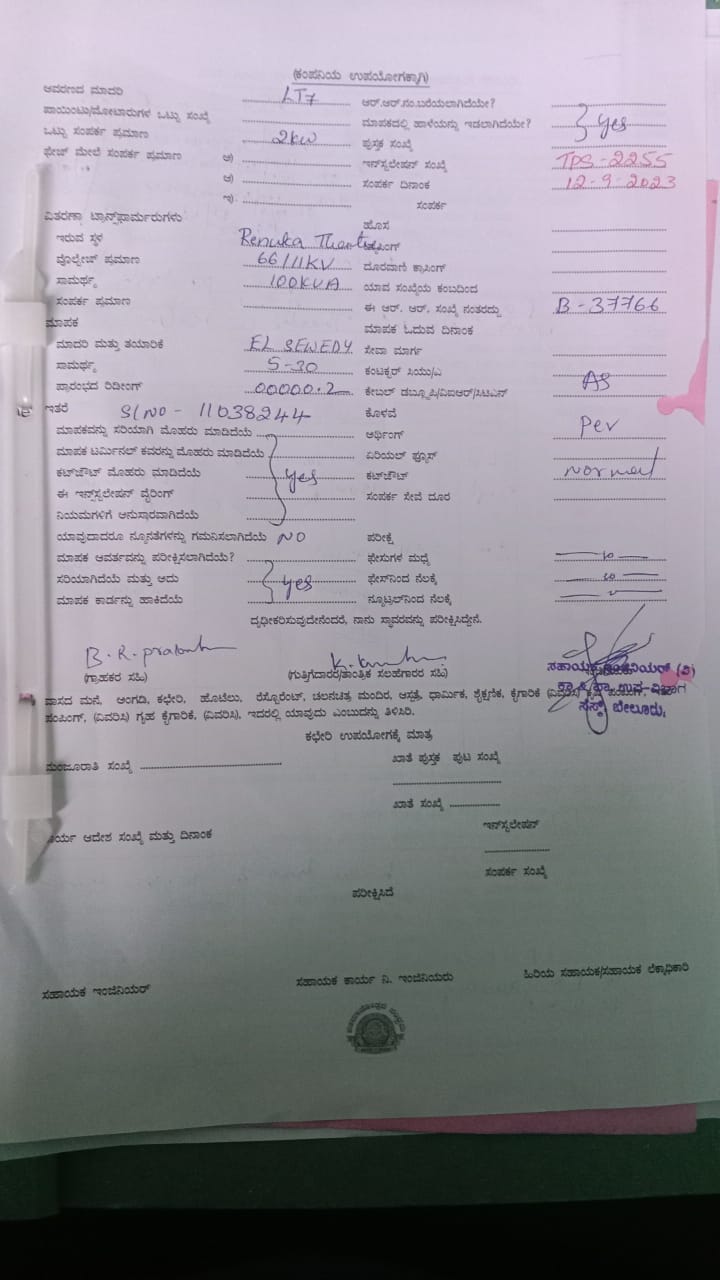 (ಕಂಪನಿಯ ಉಪಯೋಗಕ್ಕಾಗಿ)
ಆವರಣದ ಮಾದರಿ LT7 ಆರ್.ಆರ್.ನಂ.ಬರೆಯಲಾಗಿದೆಯೇ?
ಪಾಯಿಂಟು/ಮೋಟಾರುಗಳ ಒಟ್ಟು ಸಂಖ್ಯೆ ಮಾಪಕದಲ್ಲಿ ಹಾಳೆಯನ್ನು ಇಡಲಾಗಿದೆಯೇ? yes
ಒಟ್ಟು ಸಂಪರ್ಕ ಪ್ರಮಾಣ 2kw ಪುಸ್ತಕ ಸಂಖ್ಯೆ
ಫೇಜ್ ಮೇಲೆ ಸಂಪರ್ಕ ಪ್ರಮಾಣ ಅ) ಇನ್‌ಸ್ಟಲೇಷನ್ ಸಂಖ್ಯೆ TPS-2255
ಆ) ಸಂಪರ್ಕ ದಿನಾಂಕ 12-9-2023
ಇ) ಸಂಪರ್ಕ
ವಿತರಣಾ ಟ್ರಾನ್ಸ್‌ಫಾರ್ಮರುಗಳು ಹೊಸ
ಇರುವ ಸ್ಥಳ Renuka
ವೊಲ್ಟೇಜ್ ಪ್ರಮಾಣ 66/11KV ದೂರವಾಣಿ ಕ್ರಾಸಿಂಗ್
ಸಾಮರ್ಥ್ಯ 100KVA ಯಾವ ಸಂಖ್ಯೆಯ ಕಂಬದಿಂದ
ಸಂಪರ್ಕ ಪ್ರಮಾಣ ಈ ಆರ್. ಆರ್. ಸಂಖ್ಯೆ ನಂತರದ್ದು B-37766
ಮಾಪಕ ಮಾಪಕ ಓದುವ ದಿನಾಂಕ
ಮಾದರಿ ಮತ್ತು ತಯಾರಿಕೆ EL SEWEDY ಸೇವಾ ಮಾರ್ಗ
ಸಾಮರ್ಥ್ಯ 5-30 ಕಂಟಕ್ಟರ್ ಸಿಯು/ಎ
ಪ್ರಾರಂಭದ ರಿಡೀಂಗ್ 00000.2 ಕೇಬಲ್ ಡಬ್ಲ್ಯೂಪಿ/ವಿಐಆರ್/ಸಿಟಿಎಸ್ AS
ಇತರೆ Sl NO - 11038244 ಕೊಳವೆ
ಮಾಪಕವನ್ನು ಸರಿಯಾಗಿ ಮೊಹರು ಮಾಡಿದೆಯೆ ಅರ್ಥಿಂಗ್
ಮಾಪಕ ಟರ್ಮಿನಲ್ ಕವರನ್ನು ಮೊಹರು ಮಾಡಿದೆಯೆ ಏರಿಯಲ್ ಫ್ಯೂಸ್
ಕಟ್‌ಔಟ್ ಮೊಹರು ಮಾಡಿದೆಯೆ yes ಕಟ್‌ಔಟ್ normal
ಈ ಇನ್‌ಸ್ಟಲೇಷನ್ ವೈರಿಂಗ್ ಸಂಪರ್ಕ ಸೇವೆ ದೂರ
ನಿಯಮಗಳಿಗೆ ಅನುಸಾರವಾಗಿದೆಯೆ
ಯಾವುದಾದರೂ ನ್ಯೂನತೆಗಳನ್ನು ಗಮನಿಸಲಾಗಿದೆಯೆ NO ಪರೀಕ್ಷೆ
ಮಾಪಕ ಆವರ್ತವನ್ನು ಪರೀಕ್ಷಿಸಲಾಗಿದೆಯೆ? ಫೇಸುಗಳ ಮಧ್ಯೆ
ಸರಿಯಾಗಿದೆಯೆ ಮತ್ತು ಅದು yes ಫೇಸ್‌ನಿಂದ ನೆಲಕ್ಕೆ
ಮಾಪಕ ಕಾರ್ಡನ್ನು ಹಾಕಿದೆಯೆ ನ್ಯೂಟ್ರಲ್‌ನಿಂದ ನೆಲಕ್ಕೆ
ದೃಢೀಕರಿಸುವುದೇನೆಂದರೆ, ನಾನು ಸ್ಥಾವರವನ್ನು ಪರೀಕ್ಷಿಸಿದ್ದೇನೆ.
B. R.
(ಗ್ರಾಹಕರ ಸಹಿ) (ಗುತ್ತಿಗೆದಾರರ/ತಾಂತ್ರಿಕ ಸಲಹೆಗಾರರ ಸಹಿ)
ಸೆಸ್ಕ್ ಬೇಲೂರು.
ವಾಸದ ಮನೆ, ಅಂಗಡಿ, ಕಛೇರಿ, ಹೊಟೆಲು, ರೆಸ್ಟೋರೆಂಟ್, ಚಲನಚಿತ್ರ ಮಂದಿರ, ಆಸ್ಪತ್ರೆ, ಧಾರ್ಮಿಕ, ಶೈಕ್ಷಣಿಕ, ಕೈಗಾರಿಕೆ
ಪಂಪಿಂಗ್, (ವಿವರಿಸಿ) ಗೃಹ ಕೈಗಾರಿಕೆ, (ವಿವರಿಸಿ), ಇದರಲ್ಲಿ ಯಾವುದು ಎಂಬುದನ್ನು ತಿಳಿಸಿರಿ.
ಕಛೇರಿ ಉಪಯೋಗಕ್ಕೆ ಮಾತ್ರ
ಮಂಜೂರಾತಿ ಸಂಖ್ಯೆ ಖಾತೆ ಪುಸ್ತಕ ಪುಟ ಸಂಖ್ಯೆ
ಖಾತೆ ಸಂಖ್ಯೆ
ಆದೇಶ ಸಂಖ್ಯೆ ಮತ್ತು ದಿನಾಂಕ ಇನ್‌ಸ್ಟಲೇಷನ್
ಸಂಪರ್ಕ ಸಂಖ್ಯೆ
ಪರೀಕ್ಷಿಸಿದೆ
ಸಹಾಯಕ ಇಂಜಿನಿಯರ್ ಸಹಾಯಕ ಕಾರ್ಯ ನಿ. ಇಂಜಿನಿಯರು ಹಿರಿಯ ಸಹಾಯಕ/ಸಹಾಯಕ ಲೆಕ್ಕಾಧಿಕಾರಿ